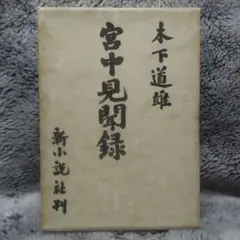 木下道雄
宮中見聞録
新小説社刊